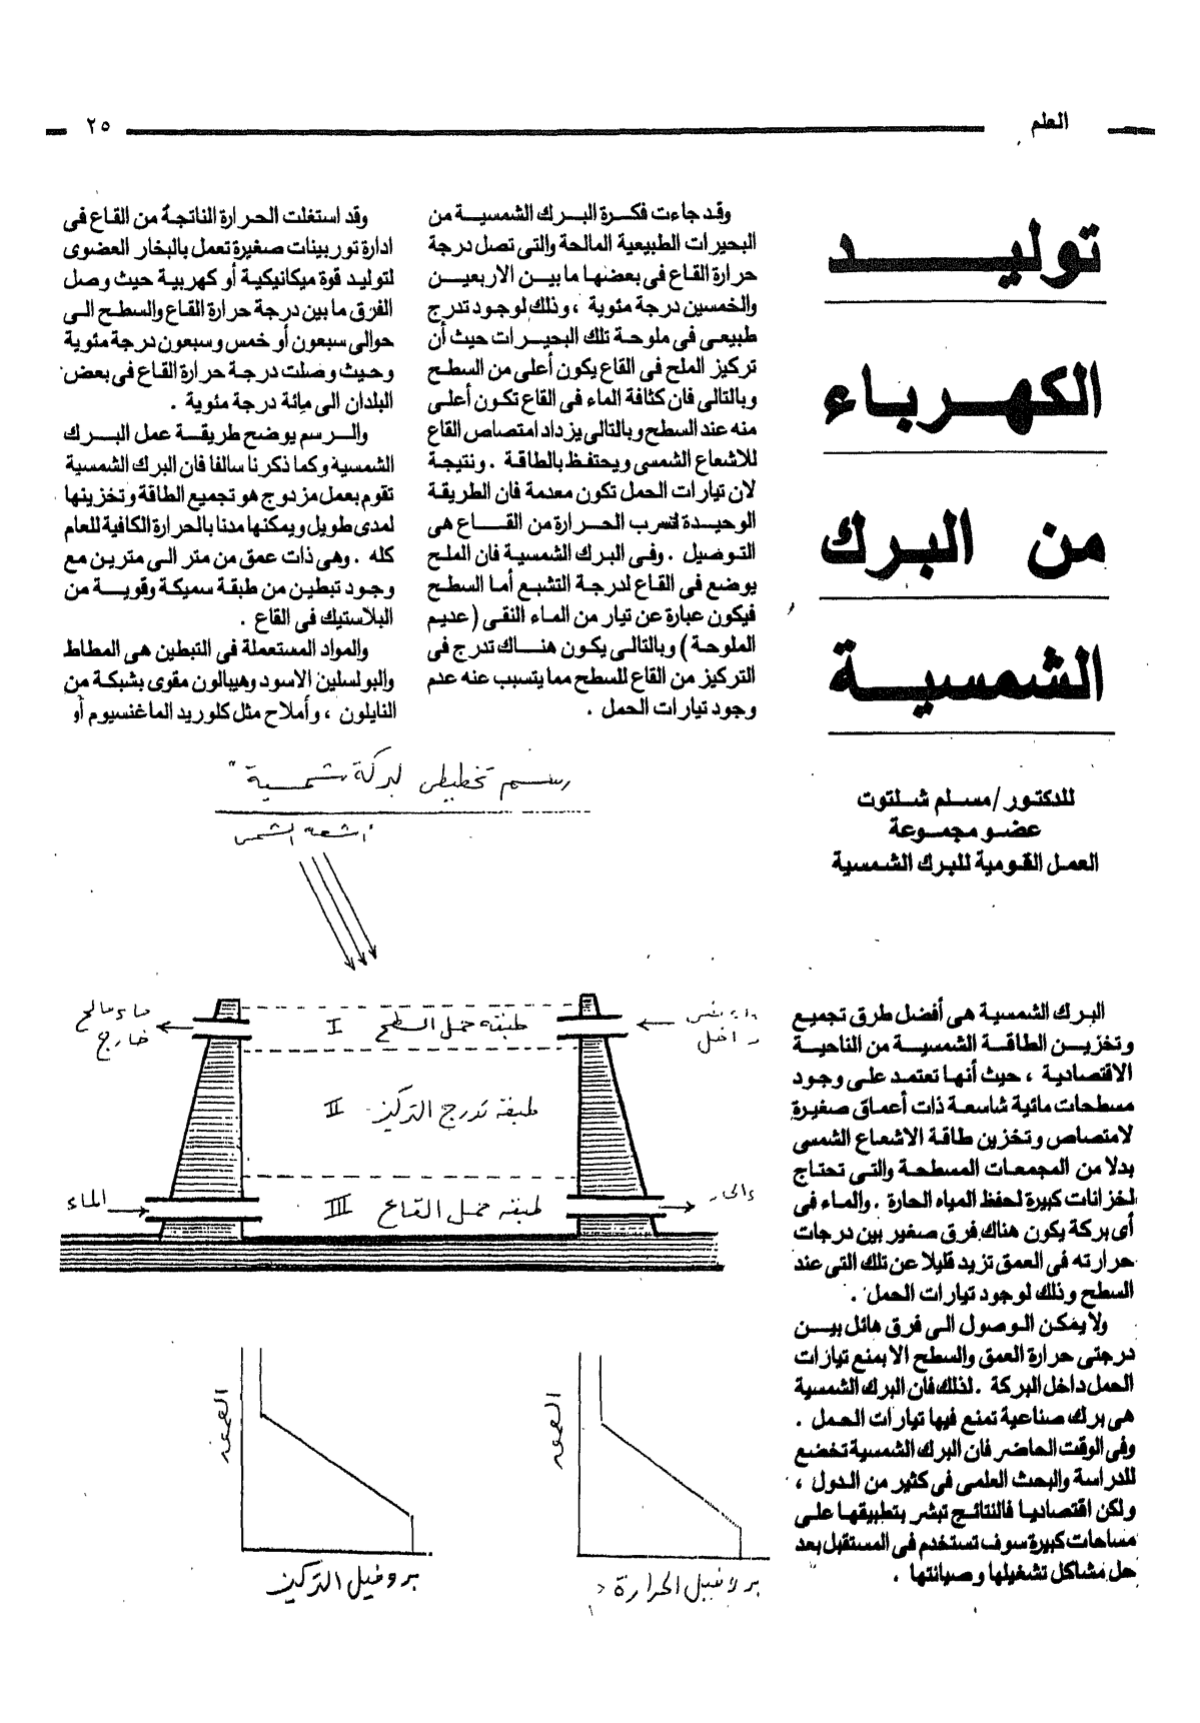 العلم
٢٥
توليــــــد
الكهـــربـاء
من البـرك
الشمسيــة
للدكتـور/مسـلم شـلتوت
عضـو مجمـوعة
العمـل القـومية للبرك الشمسية
البرك الشمسية هى أفضل طرق تجميع
وتخزيـن الطاقـة الشمسيـة من الناحيـة
الاقتصاديـة ، حيث أنهـا تعتمـد علـى وجـود
مسطحات مائية شاسعـة ذات أعمـاق صغيرة
لامتصاص وتخزين طاقـة الاشعـاع الشمسى
بدلا من المجمعـات المسطحـة والتـى تحتـاج
لخزانات كبيرة لحفظ المياه الحارة . والماء فى
أى بركة يكون هناك فرق صغير بين درجات
حرارته فى العمق تزيد قليلا عن تلك التى عند
السطح وذلك لوجود تيارات الحمل .
ولا يمكـن الـوصول الـى فرق هائل بيــن
درجتى حرارة العمق والسطح الا بمنع تيارات
الحمل داخل البركة . لذلك فان البرك الشمسية
هى برك صناعية تمنع فيها تيارات الحمل .
وفى الوقت الحاضر فان البرك الشمسية تخضع
للدراسة والبحث العلمى فى كثير من الدول ،
ولكن اقتصاديـا فالنتائـج تبشر بتطبيقهـا علـى
مساحات كبيرة سوف تستخدم فى المستقبل بعد
حل مشاكل تشغيلها وصيانتها .
وقد جاءت فكـرة البـرك الشمسيـة من
البحيرات الطبيعية المالحة والتى تصل درجة
حرارة القاع فى بعضهـا ما بيـن الاربعيـن
والخمسين درجة مئوية ، وذلك لوجود تدرج
طبيعـى فى ملوحـة تلك البحيـرات حيث أن
تركيز الملح فى القاع يكون أعلى من السطـح
وبالتالى فان كثافة الماء فى القاع تكـون أعلـى
منه عند السطح وبالتالى يزداد امتصاص القاع
للاشعاع الشمسى ويحتفـظ بالطاقـة . ونتيجـة
لان تيارات الحمل تكون معدمة فان الطريقـة
الوحيـدة لتسرب الحـرارة من القـــاع هى
التوصيل . وفـى البـرك الشمسيـة فان الملـح
يوضـع فى القـاع لدرجـة التشبـع أمـا السطـح
فيكون عبارة عن تيار من المـاء النقـى (عديـم
الملوحـة) وبالتالـى يكـون هنـاك تدرج فى
التركيز من القاع للسطح مما يتسبب عنه عدم
وجود تيارات الحمل .
وقد استغلت الحرارة الناتجة من القاع فى
ادارة توربينات صغيرة تعمل بالبخار العضوى
لتوليـد قوة ميكانيكيـة أو كهربيـة حيث وصل
الفرق ما بين درجة حرارة القاع والسطـح الـى
حوالى سبعون أو خمس وسبعون درجة مئوية
وحيث وصلت درجـة حرارة القاع فى بعض
البلدان الى مائة درجة مئوية .
والـرسم يوضـح طريقـة عمل البـرك
الشمسية وكما ذكرنا سالفا فان البرك الشمسية
تقوم بعمل مزدوج هو تجميع الطاقة وتخزينها
لمدى طويل ويمكنها مدنا بالحرارة الكافية للعام
كله . وهى ذات عمق من متر الـى متريـن مع
وجـود تبطيـن من طبقـة سميكـة وقويـة من
البلاستيك فى القاع .
والمواد المستعملة فى التبطين هى المطاط
والبولسلين الاسود وهيبالون مقوى بشبكـة من
النايلون ، وأملاح مثل كلوريد الماغنسيوم أو
رسم تخطيطى لبركة شمسية "
أشعة الشمس
ماء مالح
خارج
طبقة حمل السطح I
داخل
طبقة تدرج التركيز II
الماء
طبقة حمل القاع III
العمق
العمق
بروفيل التركيز
بروفيل الحرارة